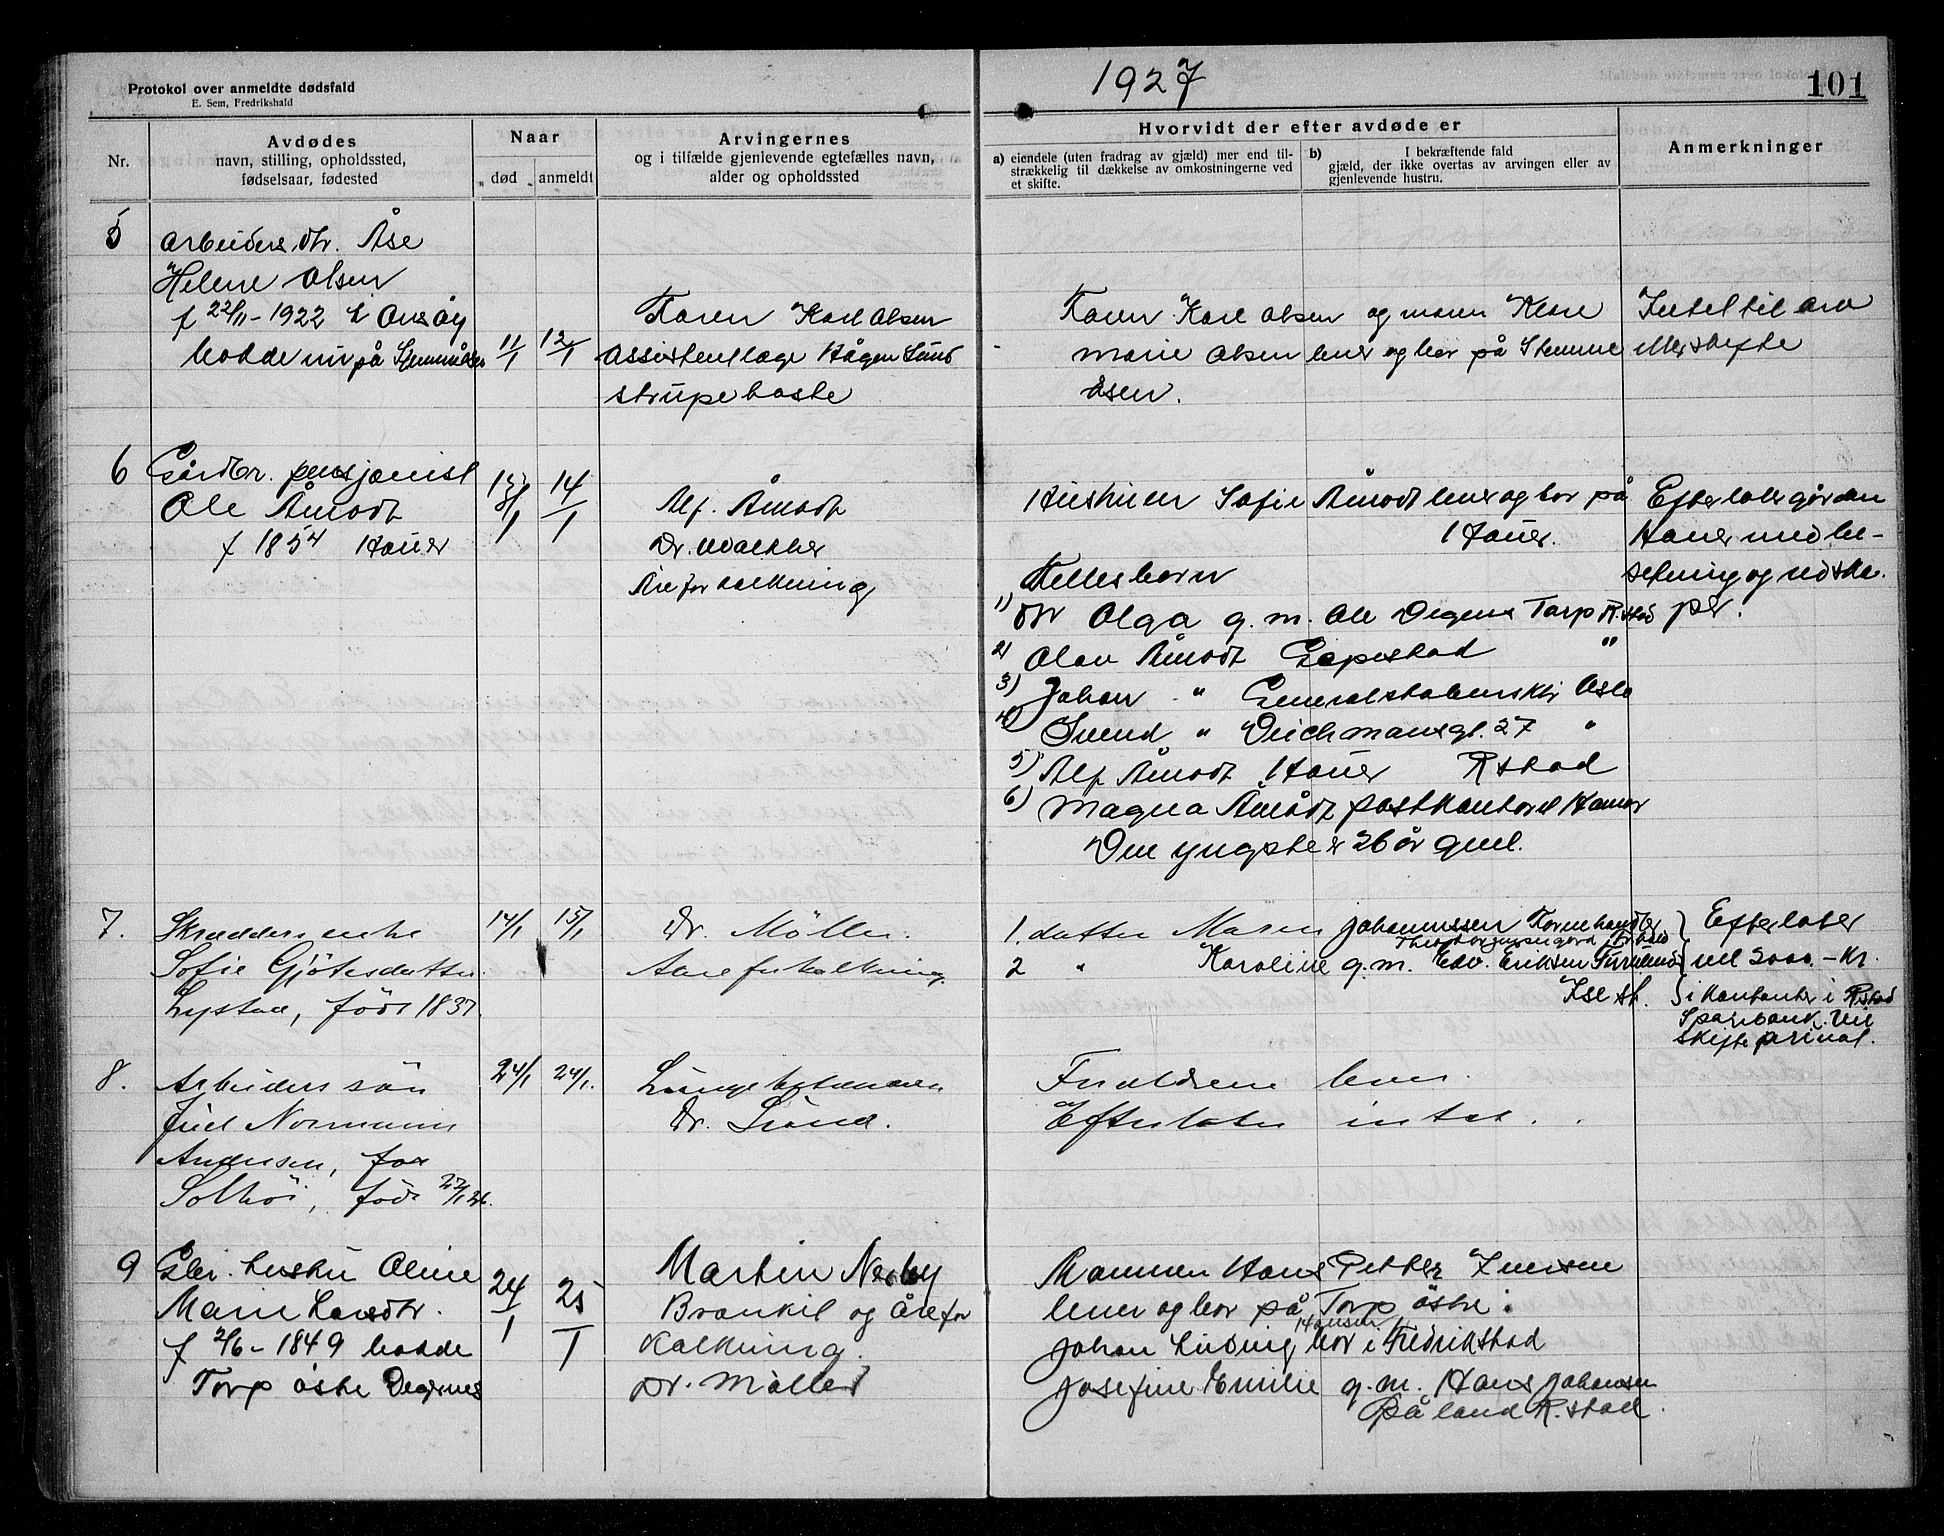 Protokol over anmeldte dødsfald
E. Sem, Fredrikshald
1927
101
Nr.
Avdødes
navn, stilling, opholdssted,
fødselsaar, fødested
Naar
død
anmeldt
Arvingernes
og i tilfælde gjenlevende egtefælles navn,
alder og opholdssted
Hvorvidt der efter avdøde er
a) eiendele (uten fradrag av gjæld) mer end til-
strækkelig til dækkelse av omkostningerne ved
et skifte.
b) I bekræftende fald
gjæld, der ikke overtas av arvingen eller av
gjenlevende hustru.
Anmerkninger
5
Arbeiders dtr. Åse
Helene Olsen
f 22/11-1922 i Onsøy
bodde nu på
11/1
12/1
Faren Karl Olsen
Assistentlæge Hågen Lund
strupehoste
Faren Karl Olsen og moren Klare
Marie Olsen lever og bor på Stemme
åsen.
Intet til arv
eller skifte
6
Gårdbr. pensjonist
Ole Åmodt
f 1854 Hauer
14/1
Alf. Åmodt
Dr.
Åreforkalkning
Hustruen Sofie Åmodt lever og bor på
Hauer.
Fellesbarn
1) Dtr Olga g. m. Ole Degnes Torp R.stad
2) Olav Åmodt Gapestad "
3) Johan " Oslo
4) Svend " Deichmansgt. 27 "
5) Alf Åmodt Hauer Rstad
6) Magna Åmodt postkontoret Hamar
Den yngste er 26 år gml.
Efterlater gården
Hauer med be-
setning og redska-
per.
7.
Skrædders enke
Sofie Gjötesdatter
Lystad, födt 1837.
14/1
15/1
Dr. Möller.
Aareforkalkning.
1. datter Maren Johannessen
2 " Karoline g. m. Edv. Eriksen
Ise st.
Efterlater
vel 2000.- kr.
i kontanter i Rstad
Sparebank. Vil
skifte privat.
8.
Arbeiders sön
Juel Normann
Andersen, fra
Solhöi, födt
24/1
24/1.
Lungebetændelse
Dr. Lund.
Forældrene lever.
Efterlater intet.
9
Gbr. hustru Oline
Marie Larsdtr.
f 2/6-1849 bodde
Torp östre Degernes
24/1
25/1
Martin Nesby
Bronkit og årefor
kalkning.
Dr. Møller
Mannen Hans Petter Iversen
lever og bor på Torp östre.
Johan Ludvig Hansen bor i Fredrikstad
Josefine Emilie g. m. Hans Johansen
På land R.stad.